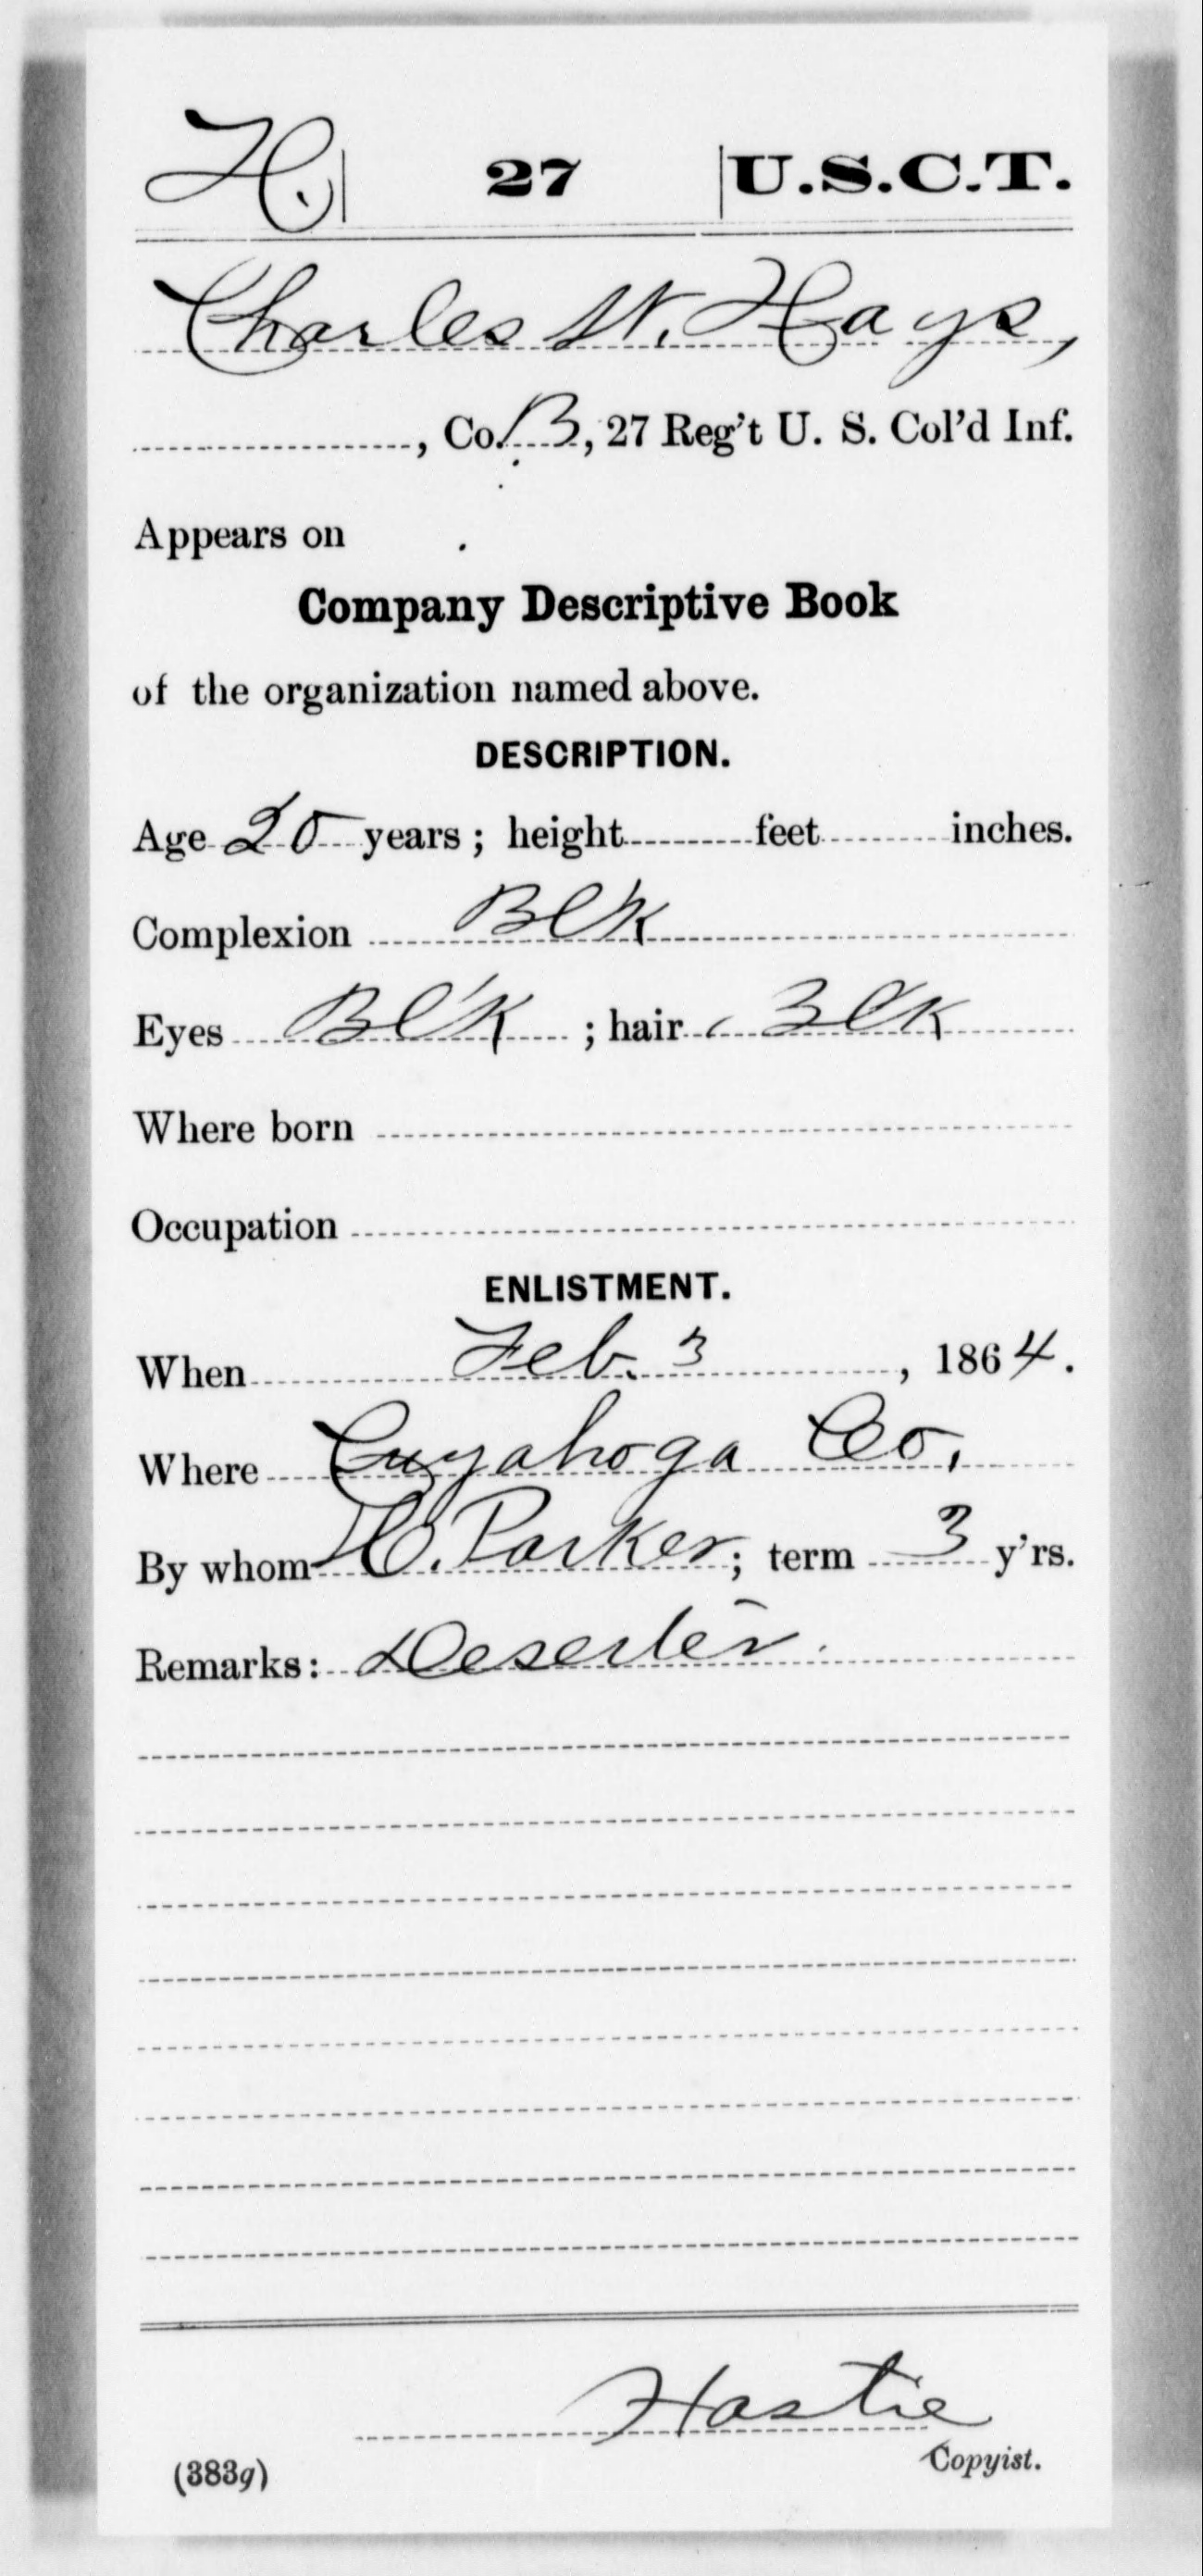 H. 27 U.S.C.T.
Charles W. Hays,
, Co. B, 27 Reg't U. S. Col'd Inf.
Appears on
Company Descriptive Book
of the organization named above.
DESCRIPTION.
Age 20 years; height feet inches.
Complexion Blk
Eyes Bl'k ; hair Blk
Where born
Occupation
ENLISTMENT.
When Feb. 3 , 1864.
Where Cuyahoga Co.
By whom H. Parker; term 3 y'rs.
Remarks: Deserter.
Hastie
Copyist.
(383g)